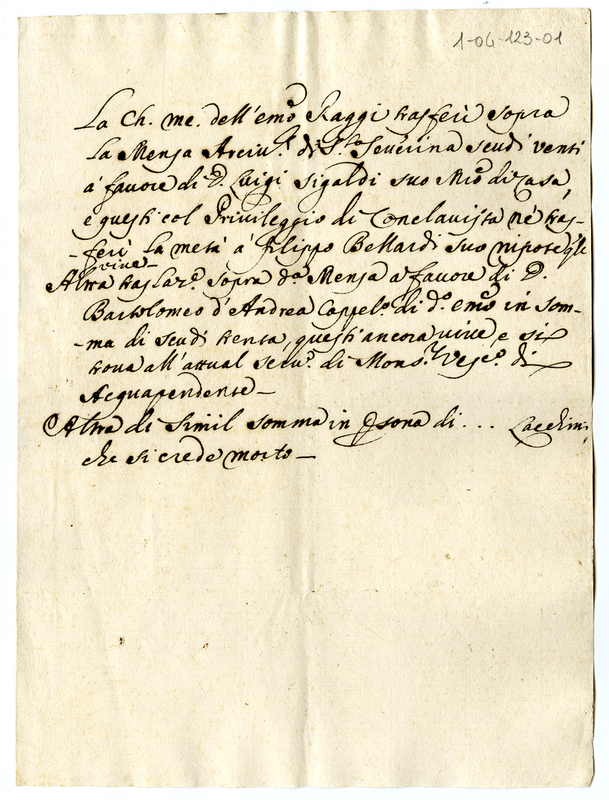 1-04-123-01
La Ch. me. dell'emo Raggi trasferì sopra
la Mensa Arciv.e di S.ta Severina scudi venti
a favore di D. Luigi Sigaldi suo Mro di Casa,
e questi col Privileggio di Conclavista ne tras-
-ferì la metà a Filippo Bellardi suo nipote q'le
vive -
Altra traslaz.e sopra d.a Mensa a favore di D.
Bartolomeo d'Andrea Cappel.o di d.o emo in som-
-ma di scudi trenta, questi ancora vive, e si
trova all'attual serv.o di Mons.r Vesc.o di
Acquapendente -
Altra di simil somma in Psona di ... Lacchini
che si crede morto -